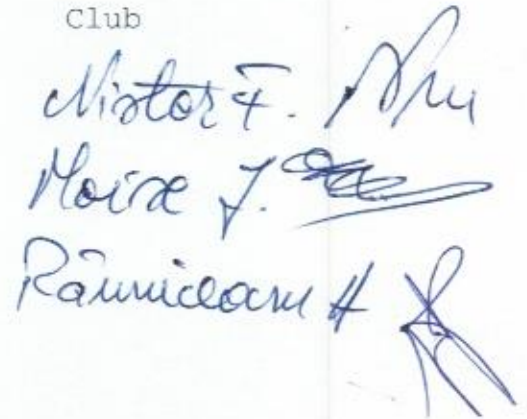 Club
Nistor F.
Moise J.
Râmniceanu A